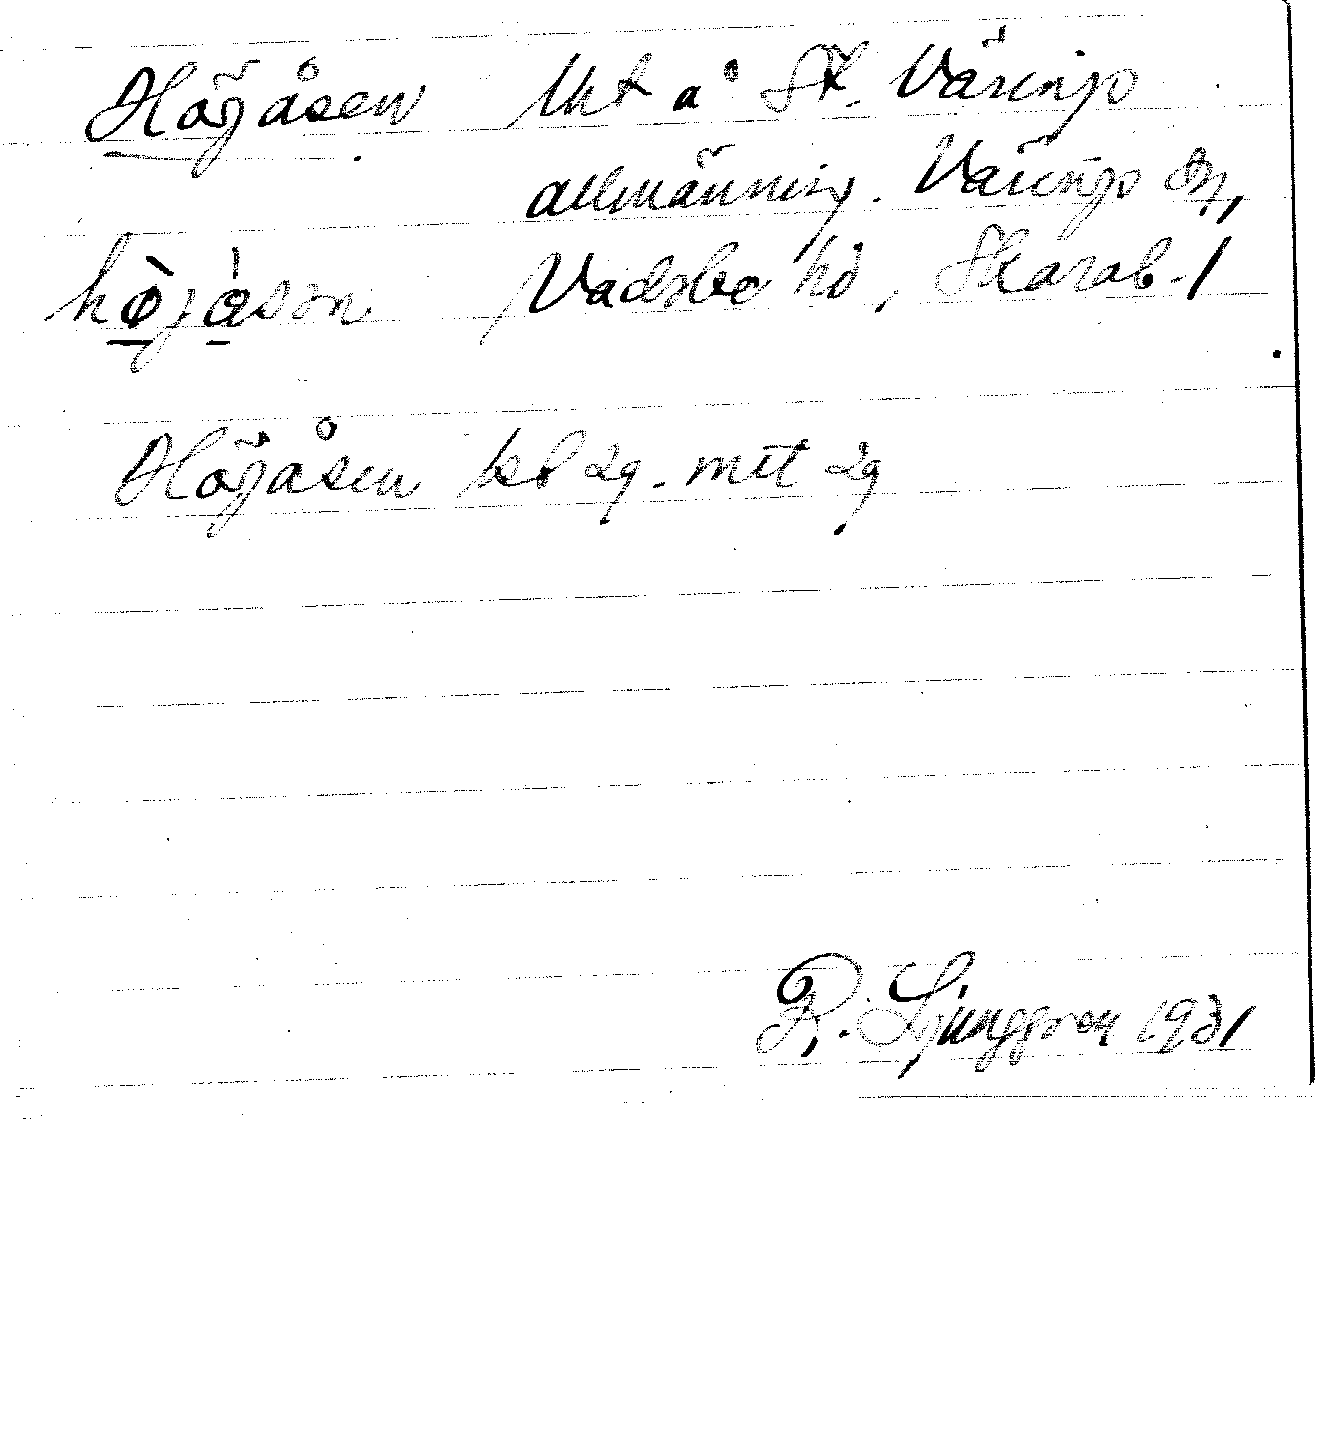 Högåsen lht å St. Värings
allmänning. Värings sn,
Vadsbo hd, Skarab. l
Högåsen kbl 29. mtt 29
R. Ljunggren 1931